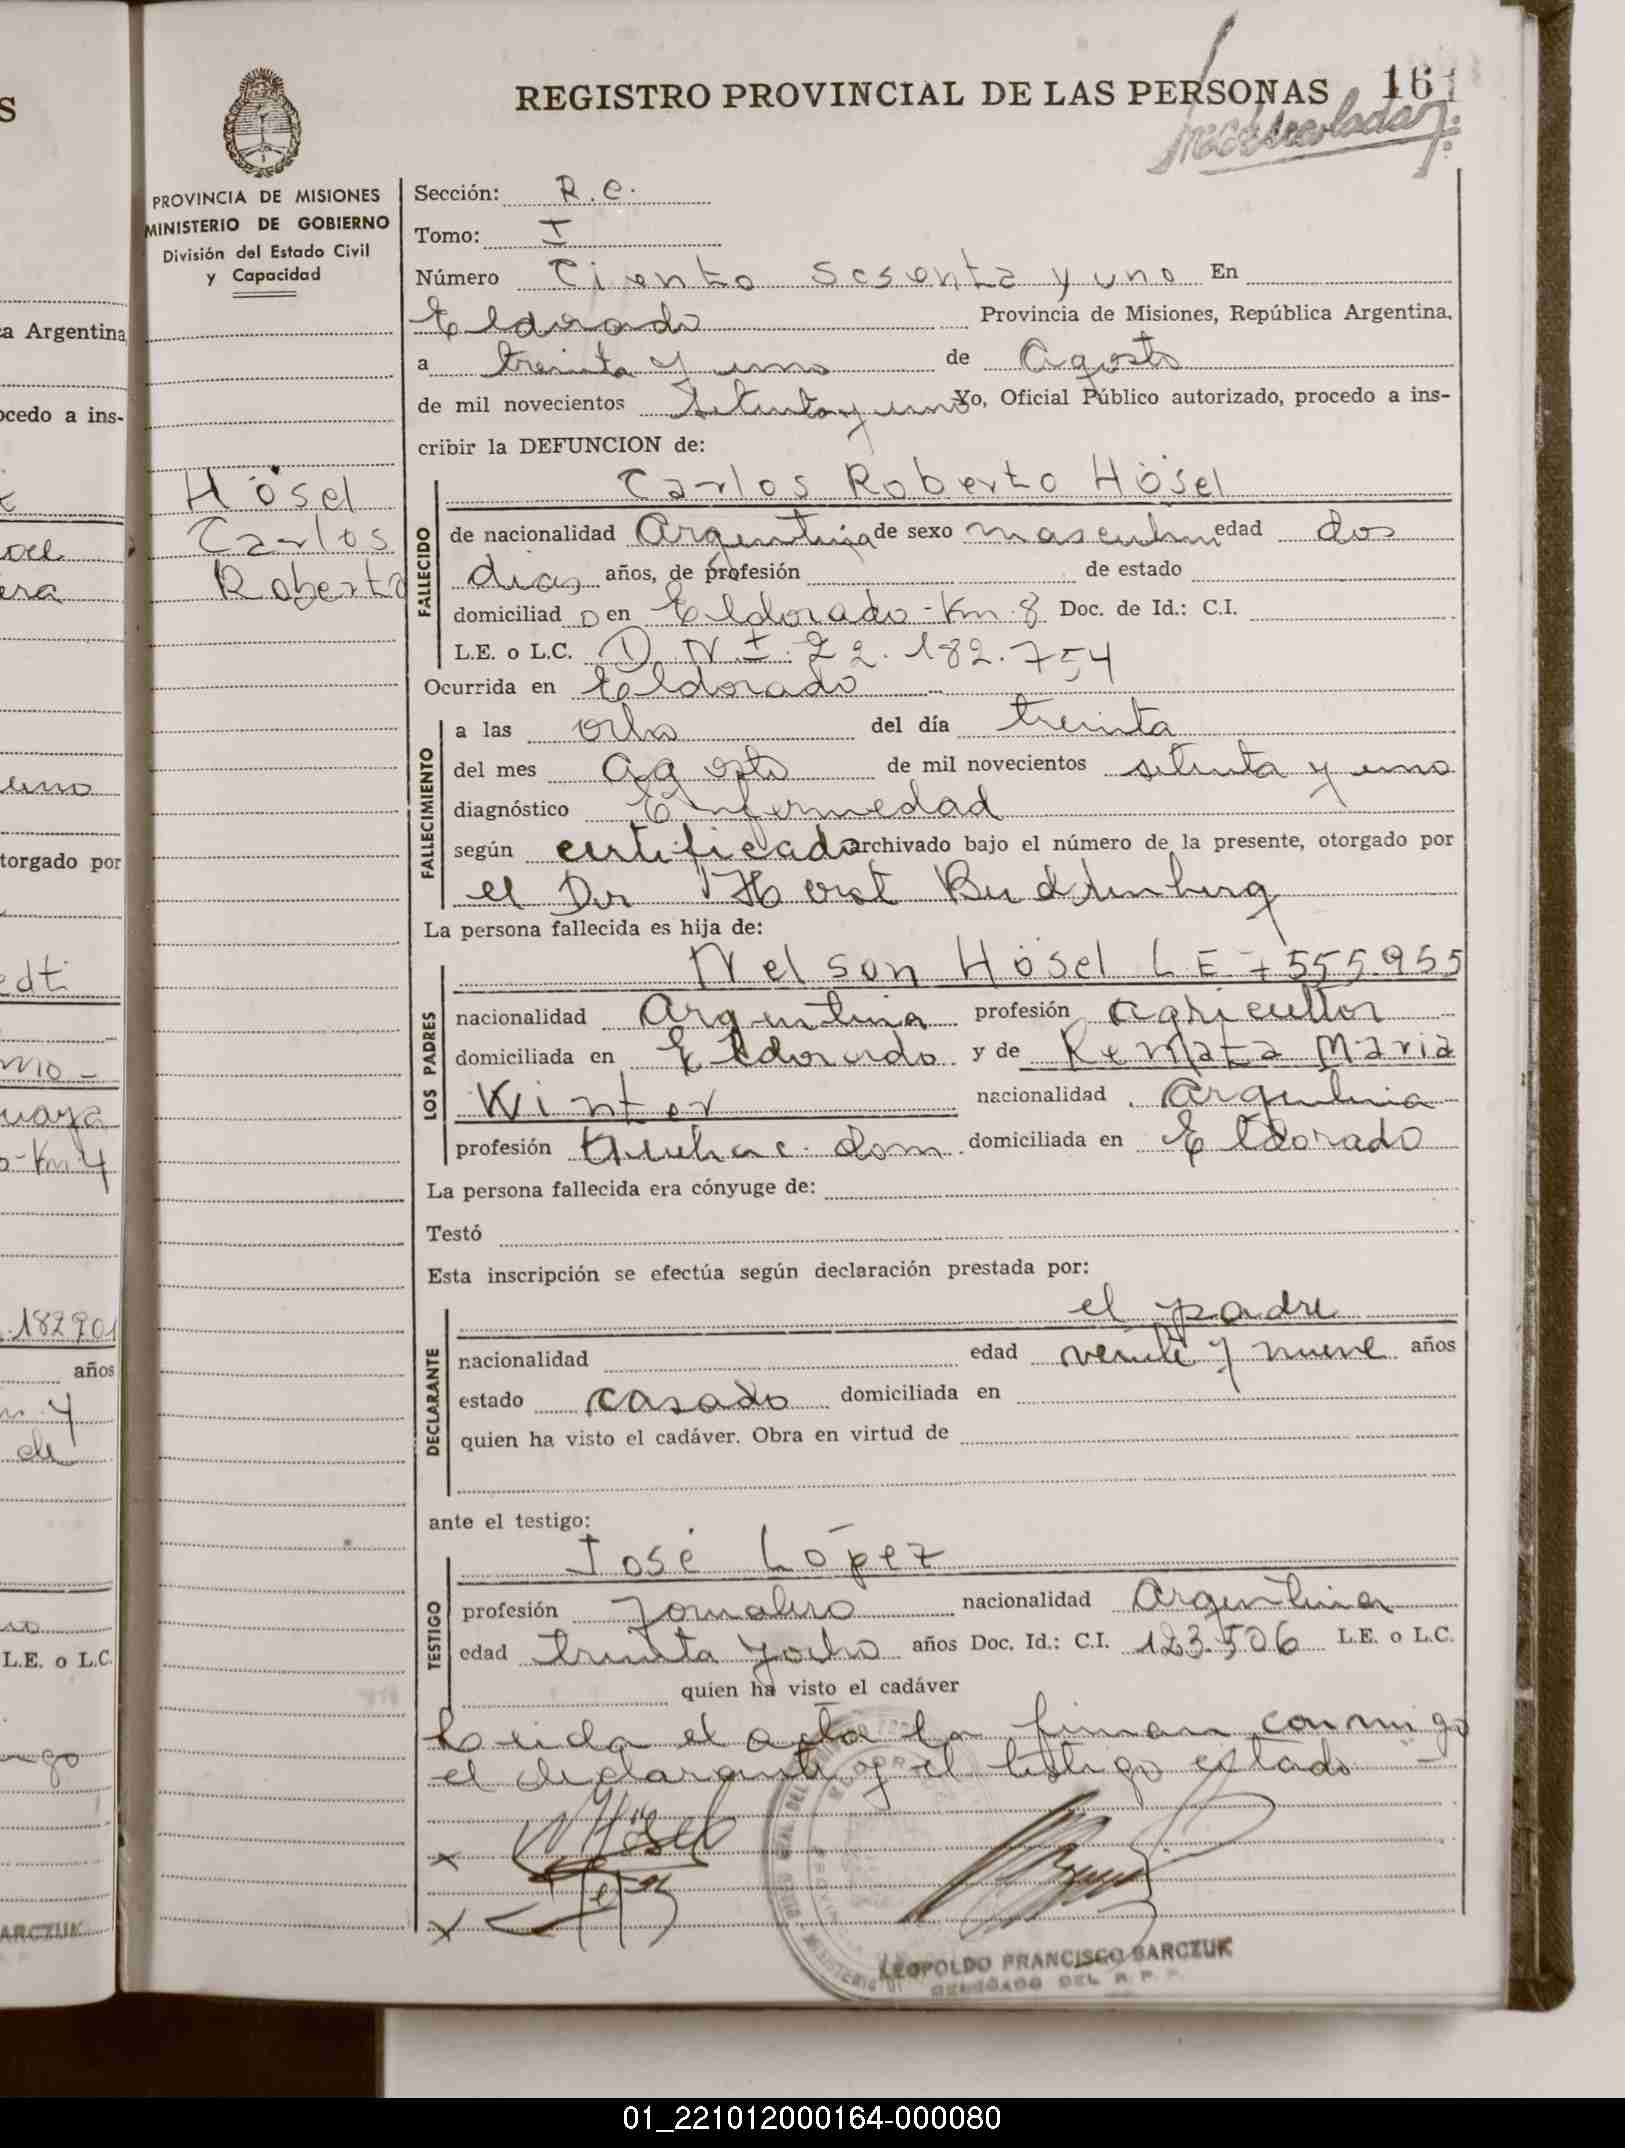 REGISTRO PROVINCIAL DE LAS PERSONAS 161
PROVINCIA DE MISIONES
MINISTERIO DE GOBIERNO
División del Estado Civil
y Capacidad
Hösel
Carlos
Roberto
Sección: R.C.
Tomo: I
Número Ciento Sesenta y uno En
Eldorado Provincia de Misiones, República Argentina,
a treinta y uno de Agosto
de mil novecientos Setenta y uno Yo, Oficial Público autorizado, procedo a ins-
cribir la DEFUNCION de:
Carlos Roberto Hösel
FALLECIDO
de nacionalidad Argentina de sexo masculino edad dos
dias años, de profesión de estado
domiciliad o en Eldorado - Km. 8 Doc. de Id.: C.I.
L.E. o L.C. D.N.I. 22.182.754
Ocurrida en Eldorado
FALLECIMIENTO
a las ocho del día treinta
del mes Agosto de mil novecientos setenta y uno
diagnóstico Enfermedad
según certificado archivado bajo el número de la presente, otorgado por
el Dr Horst
La persona fallecida es hija de:
LOS PADRES
Nelson Hösel L E 7555.955
nacionalidad Argentina profesión agricultor
domiciliada en Eldorado y de Renata Maria
Winter nacionalidad Argentina
profesión Quehac. dom. domiciliada en Eldorado
La persona fallecida era cónyuge de:
Testó
Esta inscripción se efectúa según declaración prestada por:
DECLARANTE
el padre
nacionalidad edad veinte y nueve años
estado casado domiciliada en
quien ha visto el cadáver. Obra en virtud de
ante el testigo:
TESTIGO
José López
profesión Jornalero nacionalidad Argentina
edad treinta y ocho años Doc. Id.: C.I. 123.506 L.E. o L.C.
quien ha visto el cadáver
Leida el acta la firman conmigo
el declarante y el testigo estado
N Hösel
LEOPOLDO FRANCISCO SARCZUK
DELEGADO DEL R. P. P.
01_221012000164-000080